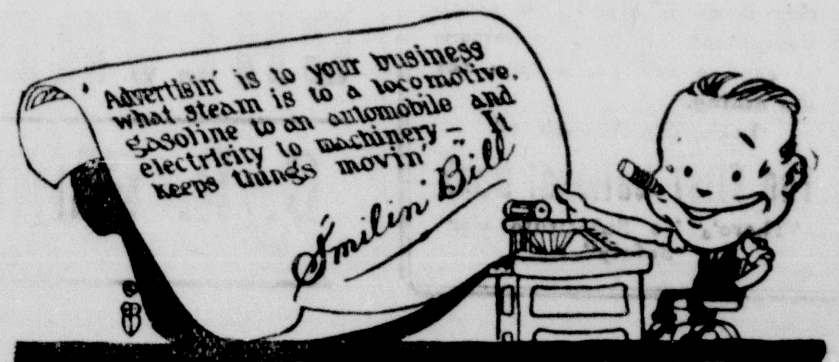 Advertisin' is to your business
what steam is to a locomotive,
gasoline to an automobile and
electricity to machinery — It
keeps things movin'
Smilin' Bill